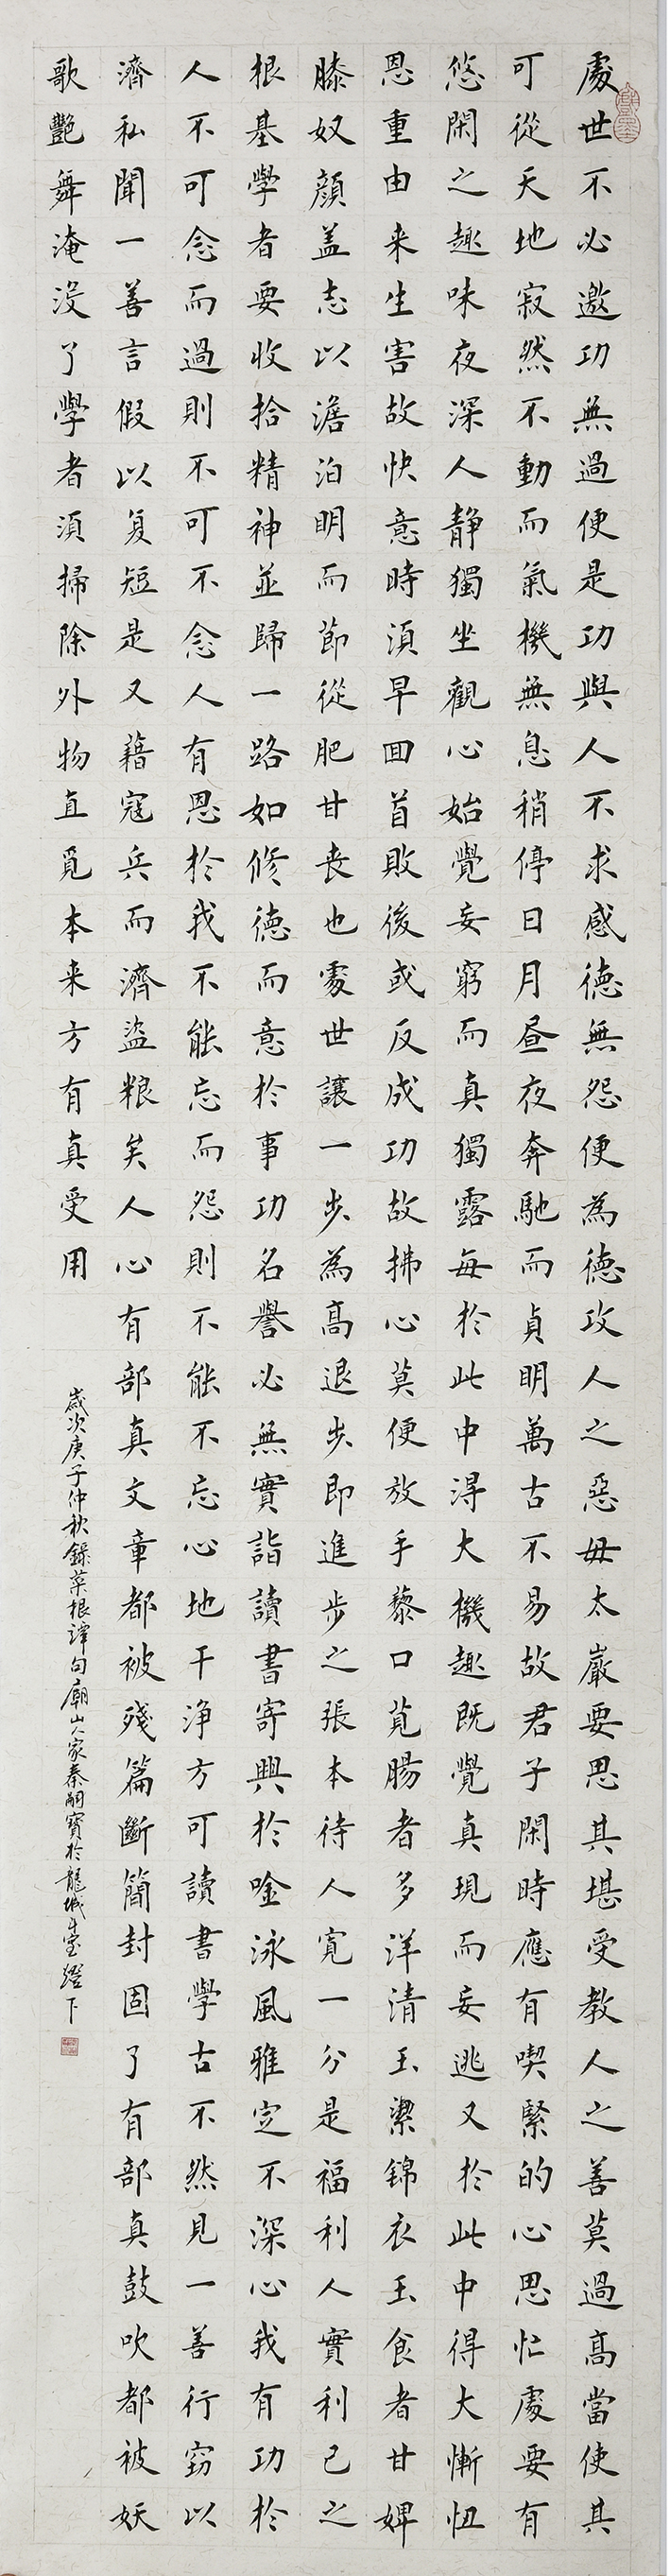 處世不必邀功無過便是功與人不求感德無怨便為德攻人之惡毋太嚴要思其堪受教人之善莫過高當使其
可從天地寂然不動而氣機無息稍停日月昼夜奔馳而貞明萬古不易故君子閑時應有喫緊的心思忙處要有
悠閑之趣味夜深人靜獨坐觀心始覺妄窮而真獨露每於此中淂大機趣既覺真現而妄逃又於此中得大慚忸
恩重由来生害故快意時須早回首敗後或反成功故拂心莫便放手藜口莧腸者多洋清玉潔錦衣玉食者甘婢
膝奴顔盖志以澹泊明而節從肥甘丧也處世讓一步為高退步即進步之張本待人寬一分是福利人實利己之
根基學者要收拾精神並歸一路如修德而意於事功名譽必無實詣讀書寄興於唫泳風雅定不深心我有功於
人不可念而過則不可不念人有恩於我不能忘而怨則不能不忘心地干净方可讀書學古不然見一善行窃以
濟私聞一善言假以复短是又藉寇兵而濟盜粮矣人心有部真文章都被殘篇斷簡封固了有部真鼓吹都被妖
歌艷舞淹没了學者須掃除外物直覓本来方有真受用
歲次庚子仲秋錄菜根譚句廟山人家秦嗣寶於龍城 燈下